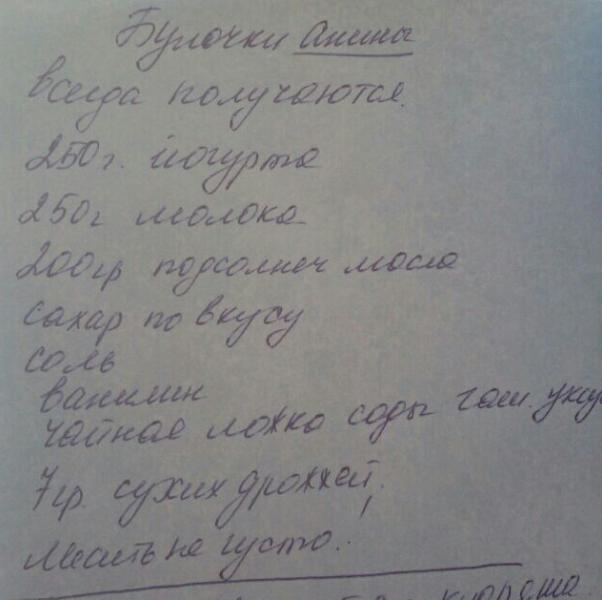 Булочки Анины
всегда получаются.
250г. йогурта
250г молока
200гр подсолнеч масла
сахар по вкусу
соль
ванилин
чайная ложка соды гаш. уксу
7гр. сухих дрожжей.
Месить не густо.